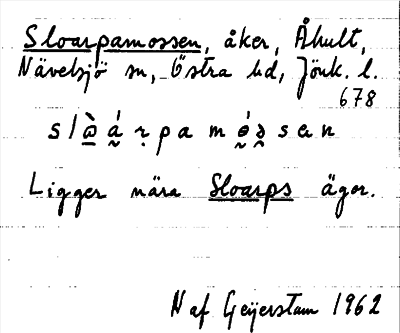 Sloarpamossen, åker, Åhult,
Nävelsjö sn, Östra hd, Jönk. l.
678
Ligger nära Sloarps ägor.
N af Geijerstam 1962